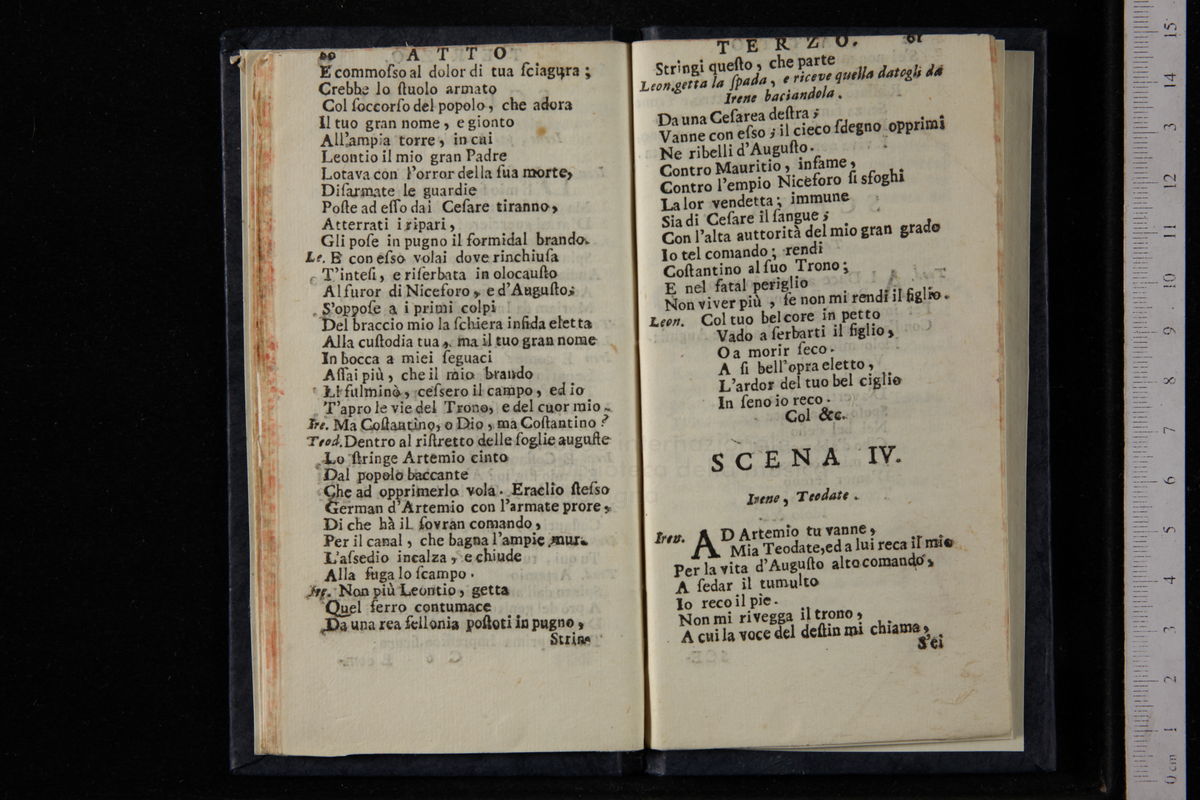 60 ATTO
E commoſso al dolor di tua ſciagura ;
Crebbe lo ſtuolo armato
Col ſoccorſo del popolo, che adora
Il tuo gran nome, e gionto
All'ampia torre, in cui
Leontio il mio gran Padre
Lotava con l'orror della ſua morte,
Diſarmate le guardie
Poſte ad eſſo dai Ceſare tiranno,
Atterrati i ripari,
Gli poſe in pugno il formidal brando.
Le. E con eſso volai dove rinchiuſa
T'inteſi, e riſerbata in olocauſto
Al furor di Niceforo, e d'Auguſto;
S'oppoſe a i primi colpi
Del braccio mio la ſchiera infida eletta
Alla cuſtodia tua, ma il tuo gran nome
In bocca a miei ſeguaci
Aſſai più, che il mio brando
Li fulminò, ceſsero il campo, ed io
T'apro le vie del Trono, e del cuor mio.
Ire. Ma Coſtantino, o Dio, ma Coſtantino ?
Teod. Dentro al riſtretto delle ſoglie auguſte
Lo ſtringe Artemio cinto
Dal popolo baccante
Che ad opprimerlo vola. Eraclio ſteſso
German d'Artemio con l'armate prore,
Di che hà il ſovran comando,
Per il canal, che bagna l'ampie mura
L'aſsedio incalza, e chiude
Alla fuga lo ſcampo.
Ire. Non più Leontio, getta
Quel ferro contumace
Da una rea fellonia poſtoti in pugno,
Strin-
TERZO. 61
Stringi queſto, che parte
Leon. getta la ſpada, e riceve quella datogli da
Irene baciandola.
Da una Ceſarea deſtra ;
Vanne con eſso ; il cieco ſdegno opprimi
Ne ribelli d'Auguſto.
Contro Mauritio, infame,
Contro l'empio Niceforo ſi sfoghi
La lor vendetta ; immune
Sia di Ceſare il ſangue ;
Con l'alta auttorità del mio gran grado
Io tel comando ; rendi
Coſtantino al ſuo Trono ;
E nel fatal periglio
Non viver più, ſe non mi rendi il figlio.
Leon. Col tuo bel core in petto
Vado a ſerbarti il figlio,
O a morir ſeco.
A ſi bell'opra eletto,
L'ardor del tuo bel ciglio
In ſeno io reco.
Col &c.
SCENA IV.
Irene, Teodate.
Iren. AD Artemio tu vanne,
Mia Teodate, ed a lui reca il mio
Per la vita d'Auguſto alto comando,
A ſedar il tumulto
Io reco il pie.
Non mi rivegga il trono,
A cui la voce del deſtin mi chiama,
S'ei